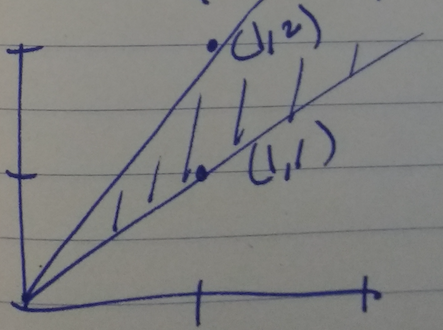 (1,2)
(1,1)